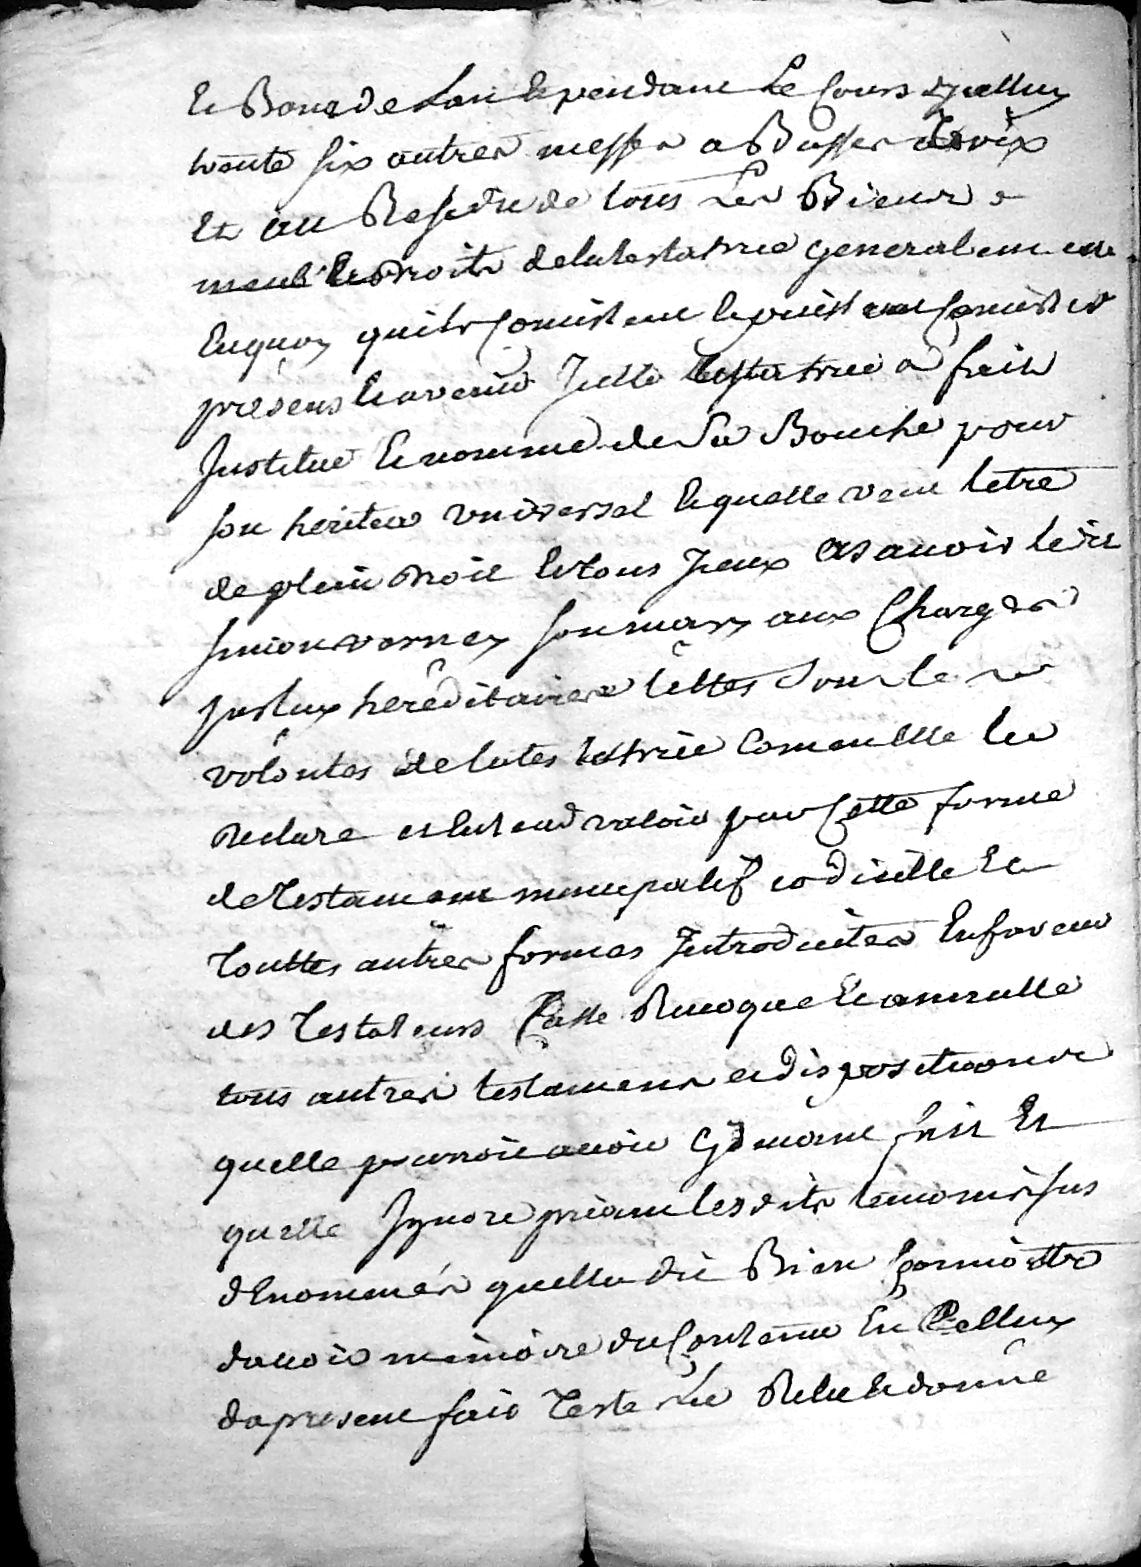 Et Bout de Lan Et pendant Le Cours dycelluy
trente six autres messes a Basses de voix
Et au Residu de tous Les Biens
meub Et droits de la testatrice generalement
En quoy quils Consistent Et puissent Consister
presens Et avenir Jcelle testatrice a fait
Jnstitue Et nomme de Sa Bouche pour
son heritier vniversel Lequelle veut letre
de plein droit Et tous Jceux asavoir ledit
simon vorney son mary aux Charges
Jusdux hereditaires telles sont les
volontes de la testatrice Come Elle la
declare Et Entend valoir par Cette forme
de Testament nuncupatif codicille Et
touttes autres formes Jntroduites En faveur
des Testateurs Casse Revoque Et annulle
tous autres testamens et dispositions
quelle pourroit avoir Cy devant fait Et
quelle Jgnore priant lesdits temoins sus
dEnommés quelle dit Bien Connoittre
davoir memoire du Contenu En Celluy
da present fait Teste Lu Relu Et donné